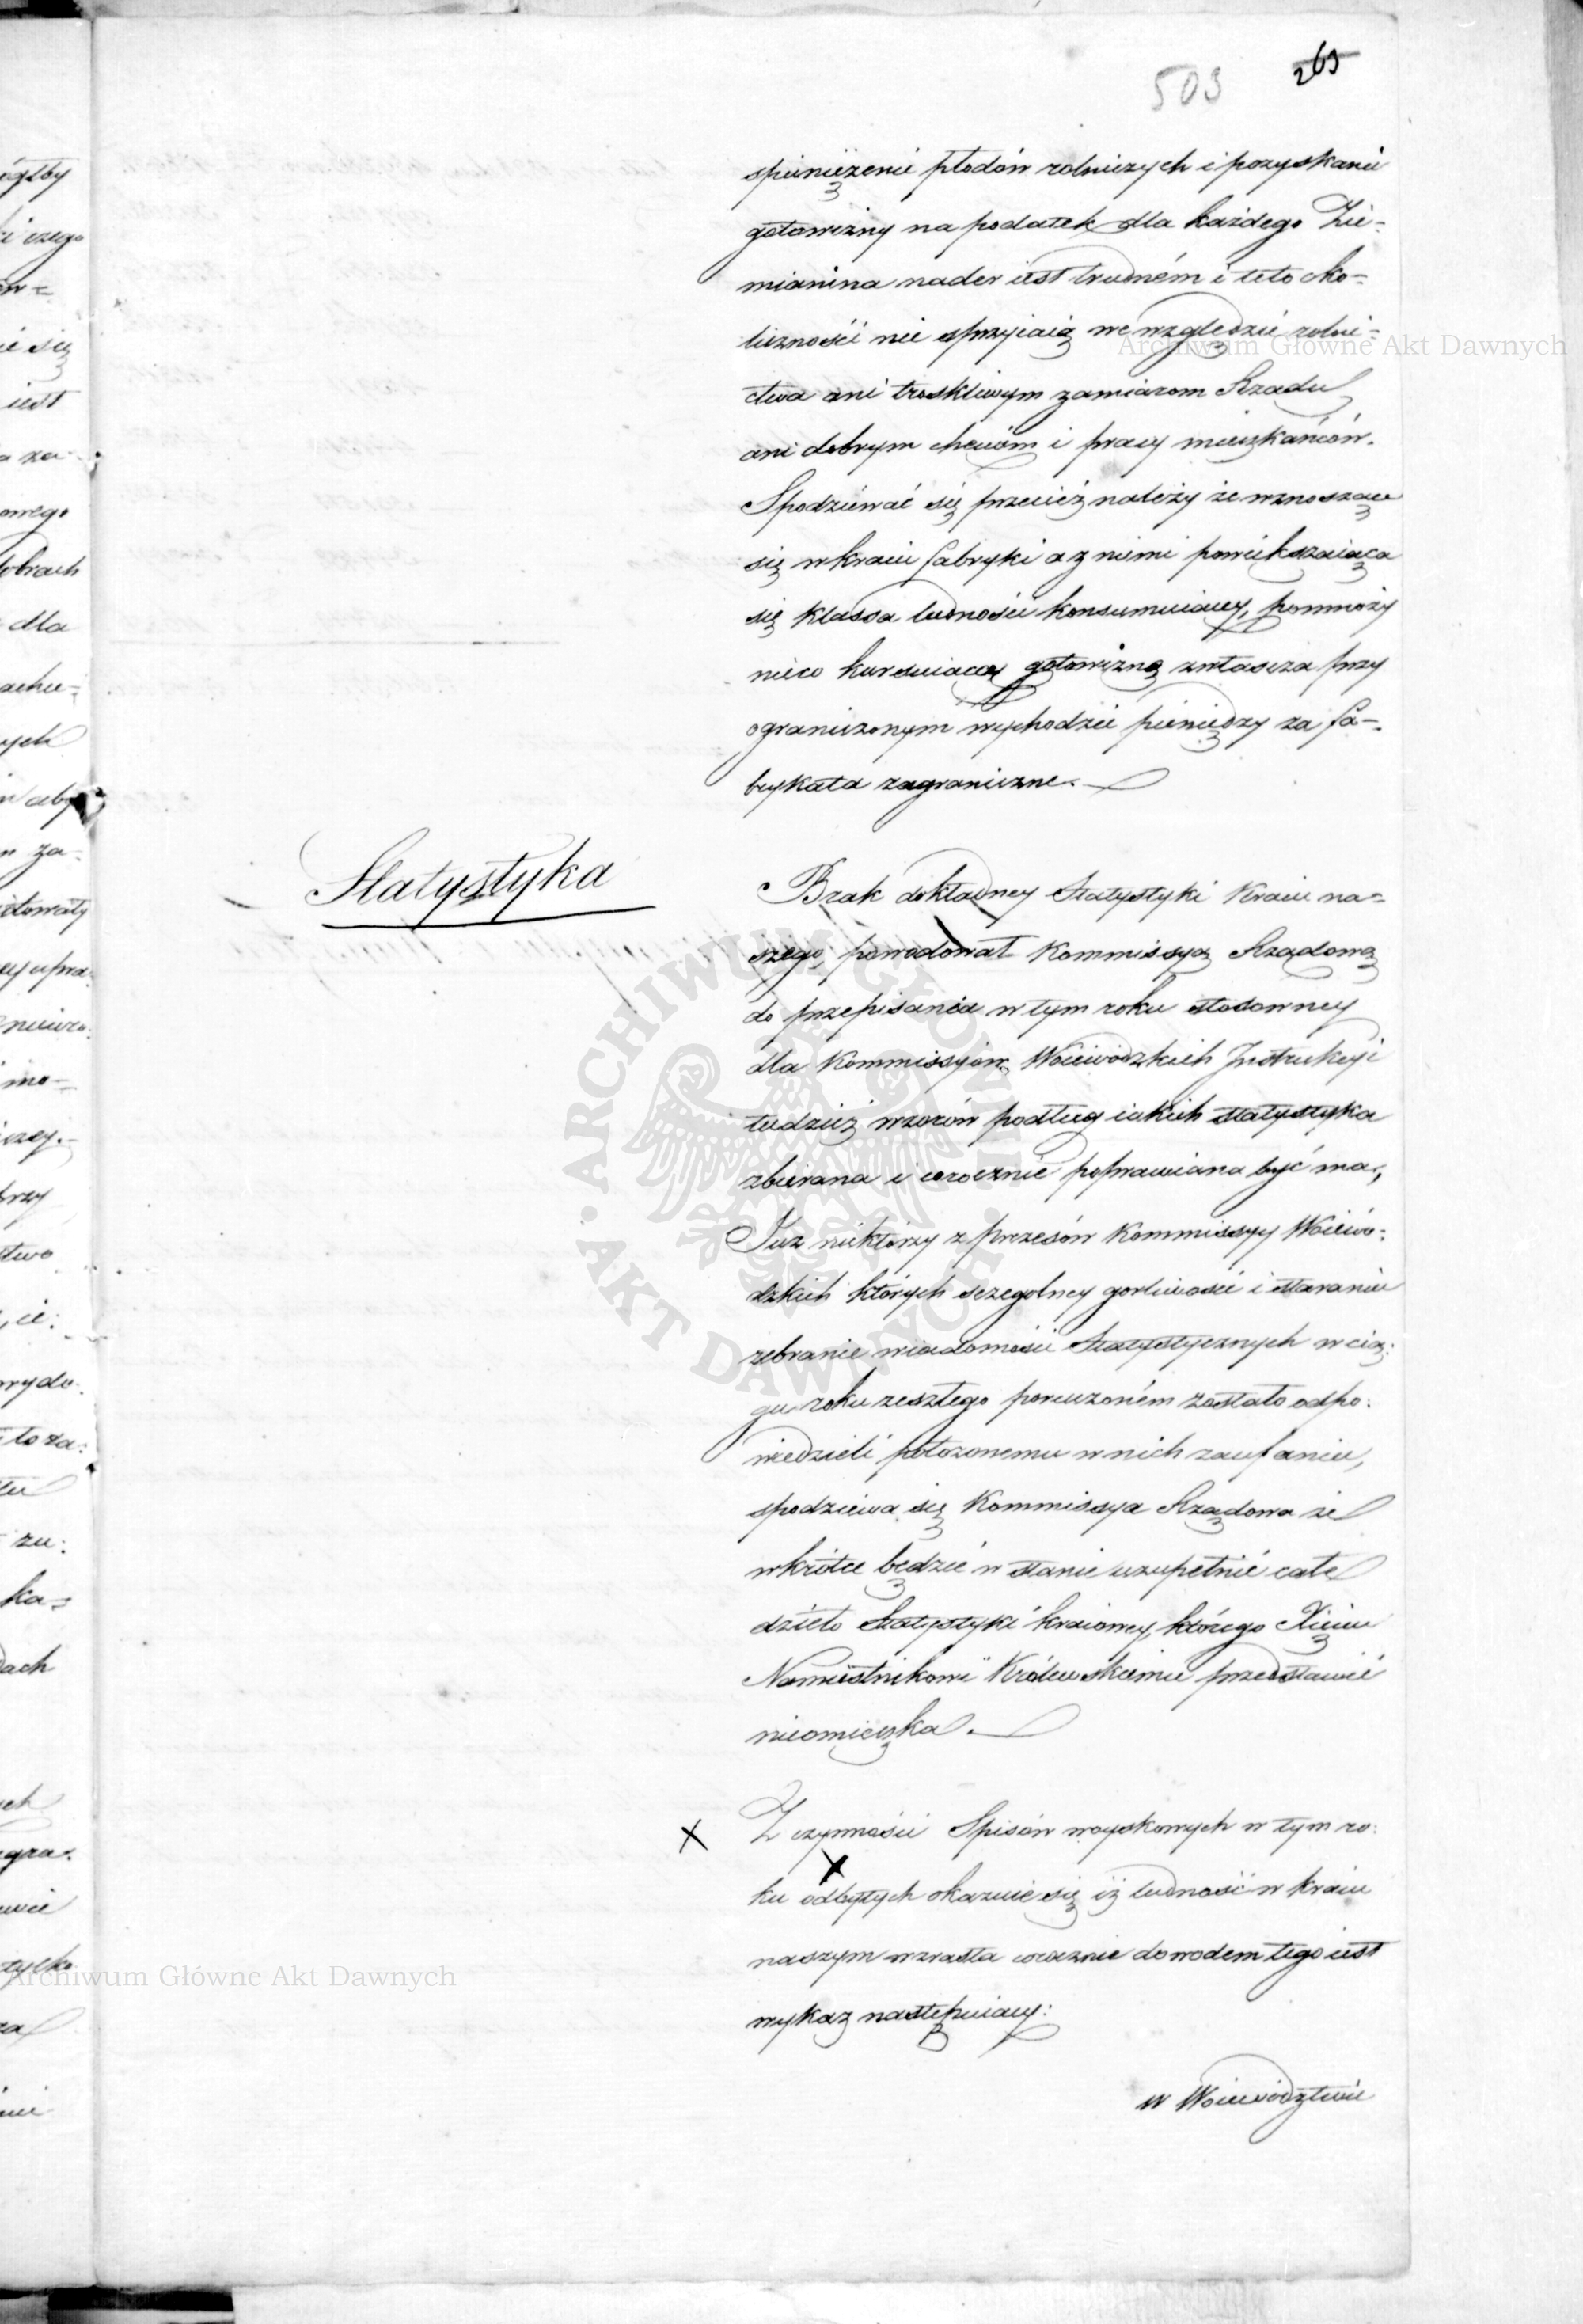 503 269
spieniężenie płodów rolniczych i pozyskanie
gotowizny na podatek dla każdego Zie-
mianina nader iest trudném i te to oko-
liczności nie sprzyiaią we względzie rolni-
ctwa ani troskliwym zamiarom Rządu
ani dobrym chęciom i pracy mieszkańców.
Spodziewać się przecież należy że wznoszące
się w kraiu fabryki a z niemi powiększaiąca
się klassa ludności konsumuiącey, pomnoży
nieco kursuiącą gotowiznę zwłaszcza przy
ograniczonym wychodzie pieniędzy za fa-
brykata zagraniczne.
Statystyka
Brak dokładney Statystyki Kraiu na-
szego, powodował Kommissyą Rządową
do przepisania w tym roku stosowney
dla Kommissyiów Woiewodzkich Instrukcyi
tudzież wzorów podług iakich statystyka
zbierana i corocznie poprawiana być ma,
Już niektórzy z prezesów Kommissyy Woiewo-
dzkich których szczegolney gorliwości i staraniu
zebranie wiadomości Statystycznych w cią-
gu roku zeszłego poruczoném zostało odpo-
wiedzieli położonemu w nich zaufaniu,
spodziewa się Kommissya Rządowa że
wkrótce będzie w stanie uzupełnić całe
dzieło Statystyki kraiowey, którego Xięciu
Namiestnikowi Królewskiemu przedstawić
nieomieszka.
x Z czynności Spisów woyskowych w tym ro-
x
ku odbytych okazuie się iż ludność w kraiu
naszym wzrasta corocznie dowodem tego iest
wykaz następuiący:
w Woiewództwie
Archiwum Główne Akt Dawnych
Archiwum Główne Akt Dawnych
ARCHIWUM GŁÓWNE
AKT DAWNYCH